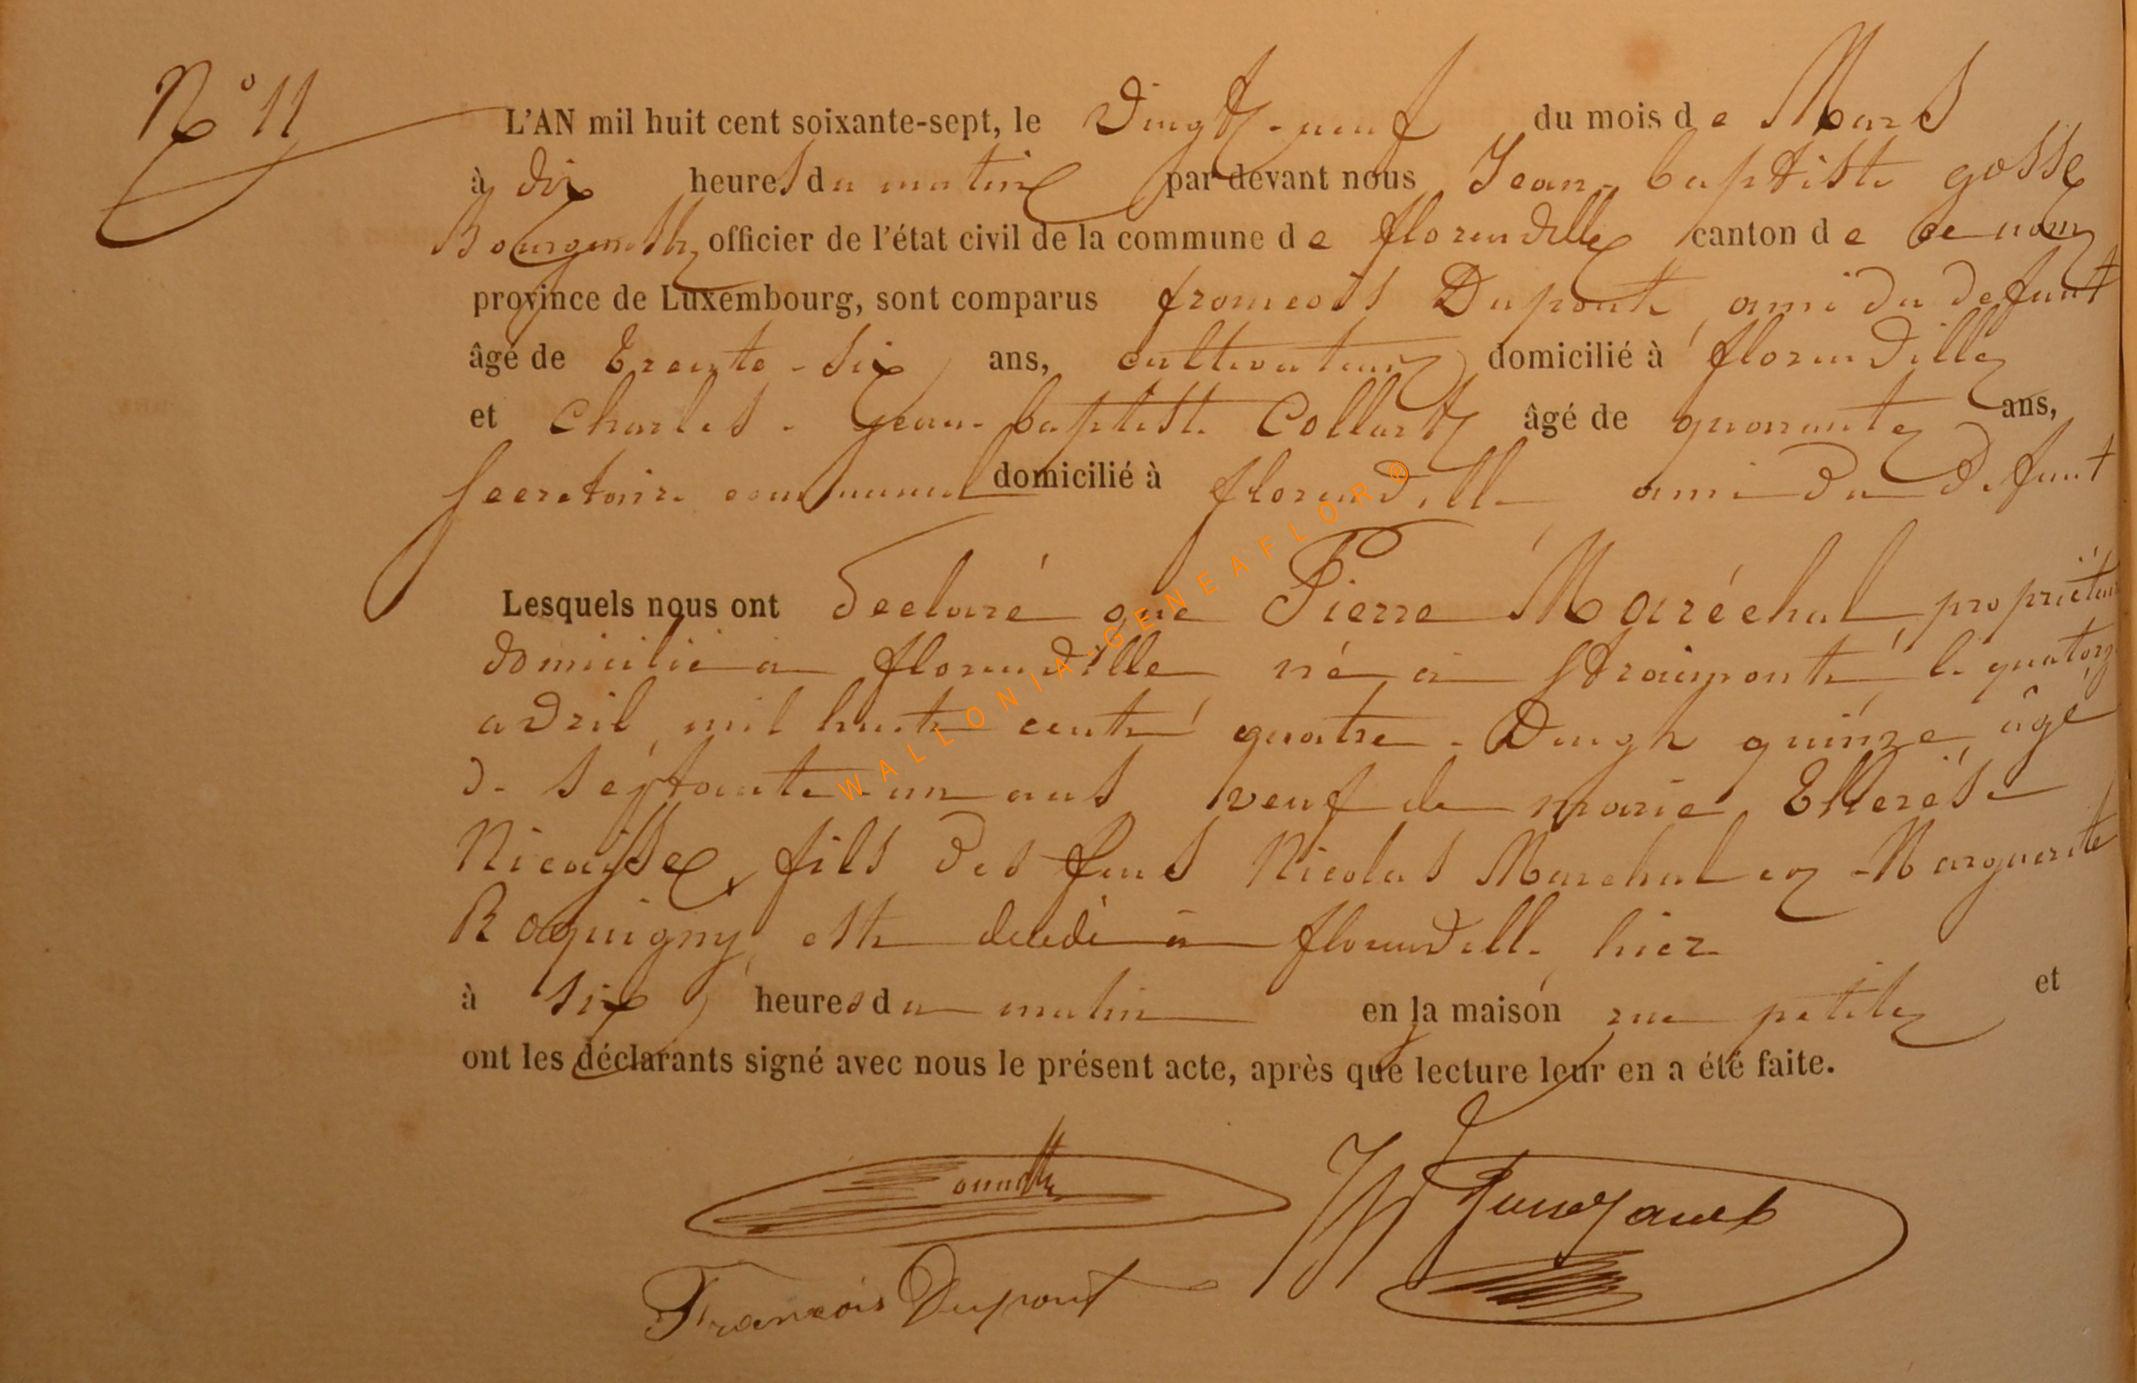 N° 11
L'AN mil huit cent soixante-sept, le Vingt-neuf du mois de Mars
à dix heures du matin par devant nous Jean-baptiste gosse
Bourgmestre officier de l'état civil de la commune de florenville canton de ce nom
province de Luxembourg, sont comparus francois Dupont, ami du defunt
âgé de trente-six ans, cultivateur domicilié à florenville
et Charles-Jean-baptiste Collart âgé de quarante ans,
secretaire communal domicilié à florenville ami du defunt
Lesquels nous ont déclaré que Pierre Maréchal, propriétaire
domicilié a florenville né a Straimont, le quatorze
avril mil huit cent quatre-vingt quinze, âgé
de septante-un ans veuf de marie Therése
Nicaisse, fils des feus Nicolas Marchal et Marguerite
Roquigny, est decédé a florenville hier
à six heures du matin en la maison rue petite et
ont les déclarants signé avec nous le présent acte, après que lecture leur en a été faite.
Francois Dupont
WALLONIA-GENEAFLOR®